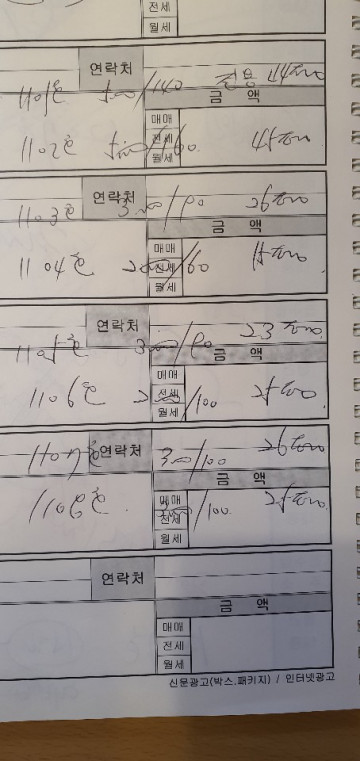 전세
월세
연락처
1101호 500/140 전용 44평
금 액
매매
1102호 500/160. 45평
전세
월세
연락처
1103호 300/90 26평
금 액
매매
1104호 200/60 15평
전세
월세
연락처
1105호 300/90 23평
금 액
매매
1106호 /100 25평
전세
월세
1107호 연락처 300/100 26평
금 액
매매
1108호 /100. 25평
전세
월세
연락처
금 액
매매
전세
월세
신문광고(박스,패키지) / 인터넷광고